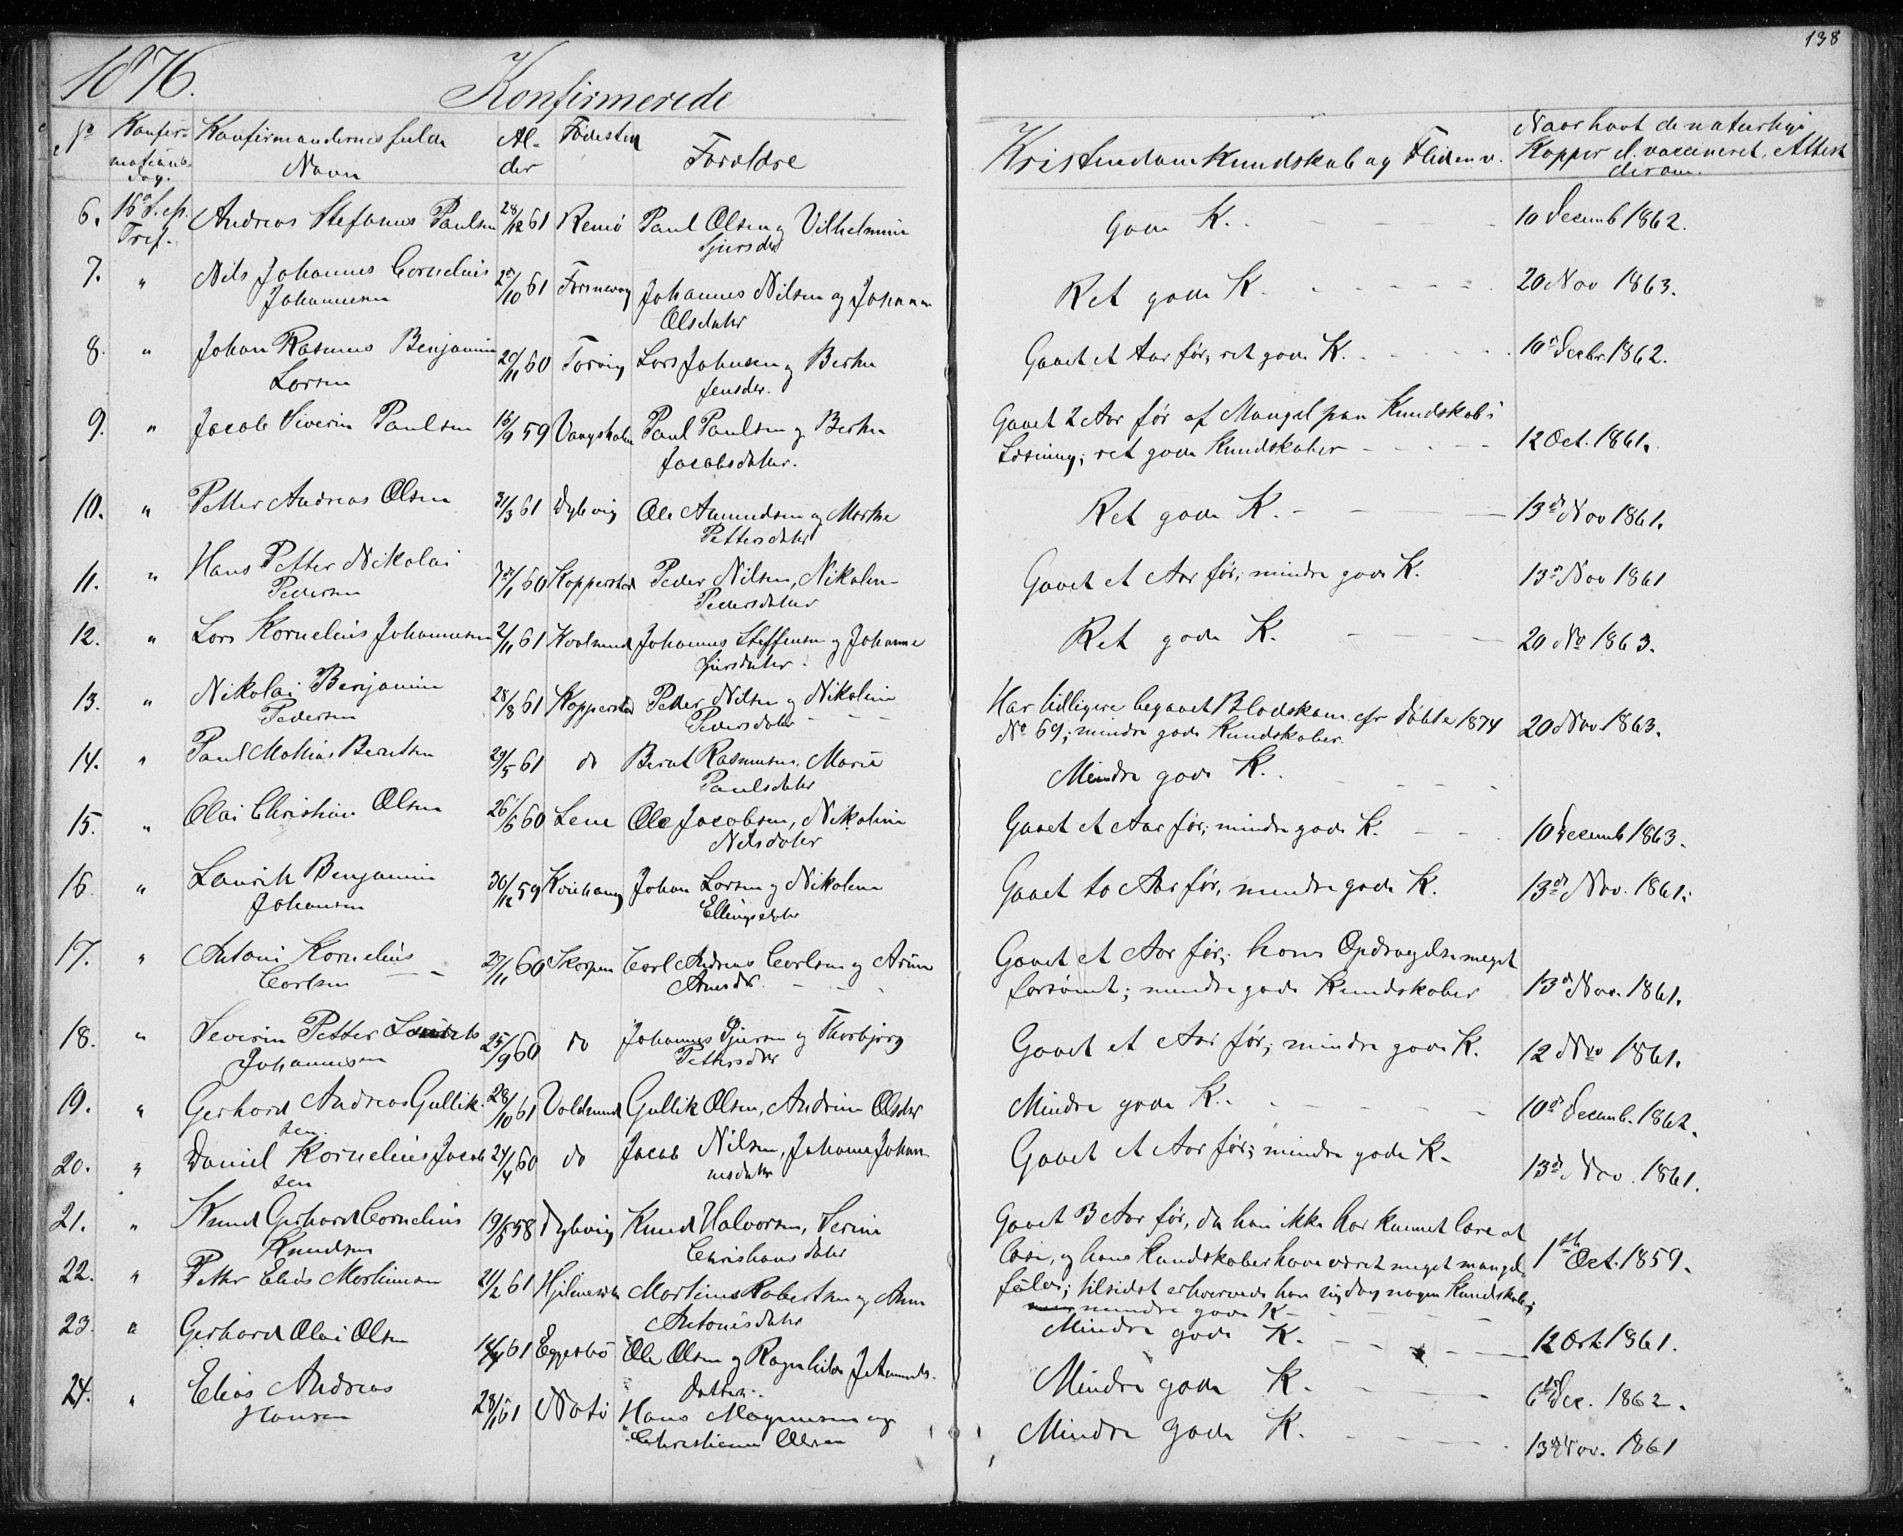 138
1876.
Konfirmerede
No Konfir- Konfirmandernes fulde Al- Fødested Forældre Kristendomskundskab og Flid m. v. Naar havt de naturlige
mations- Navn der Kopper el. vaccineret, Attest
dag. derom.
6. 16 S. e. Andreas Stefanus Paulsen 28/12 61 Remö Paul Olsen og Vilhelmine gode K. 10 Decemb 1862.
Tref. Sjursdr
7. " Nils Johannes Cornelius 61 Johannes Nilsen og Johanna Ret gode K. 20 Nov 1863.
Johannesen Olsdatter
8. " Johan Rasmus Benjamin 60 Torvig Lars Johnsen og Berthe Gaaet et Aar før; ret gode K. 10d Decbr 1862.
Larsen Jensdr.
9. " Jacob Siverin Paulsen 16/9 59 Vaagsholm Paul Paulsen og Berthe Gaaet 2 Aar før af Mangel paa Kundskab i 12 Oct. 1861.
Jacobsdatter. Læsning; ret gode Kundskaber
10. " Petter Andreas Olsen 31/3 61 Dybvig Ole Amundsen og Marthe Ret gode K. 13d Nov 1861.
Pettersdatter
11. " Hans Petter Nikolai 60 Kopperstad Peder Nilsen, Nikoline Gaaet et Aar før; mindre gode K. 13d Nov 1861
Pedersen Pedersdatter
12. " Lars Kornelius Johannesen 2/11 61 Johannes Steffensen og Johanne Ret gode K. 20 No 1863.
Sjursdatter
13. " Nikolai Benjamin 28/8 61 Kopperstad Petter Nilsen og Nikoline Har tidligere begaaet Blodskam cfr døbte 1874 20 Nov 1863.
Pedersen Pedersdatter No 69; mindre gode Kundskaber.
14. " Paul Mathias Berntsen 29/5 61 do Bernt Rasmussen, Marie Mindre gode K.
Paulsdatter
15. " Olai Christian Olsen 26/6 60 Lene Ole Jacobsen, Nikoline Gaaet et Aar før; mindre gode K. 10 Decemb 1863.
Nilsdatter
16. " Laurik Benjamin 30/12 59 Johan Larsen og Nikoline Gaaet to Aar før, mindre gode K. 13de Nov. 1861.
Johansen Ellingsdatter
17. " Antoni Kornelius 27/11 60 Skorpen Carl Andreas Carlsen og Arine Gaaet et Aar før; hans Opdragelse meget
Carlsen Arnesdr. forsømt; mindre gode Kundskaber 13d Nov. 1861.
18. " Severin Petter 25/9 60 do Johannes Sjursen og Thorbjørg Gaaet et Aar før; mindre gode K. 12 Nov 1861.
Johannesen Pettersdtr
19. " Gerhard Andreas Gullik- 28/10 61 Voldsund Gullik Olsen, Andrine Olsdtr Mindre gode K. 10d Decemb. 1862.
sen.
20. " Daniel Kornelius Jacob- 24/4 60 do Jacob Nilsen, Johanne Johan- Gaaet et Aar før; mindre gode K. 13d Nov. 1861.
sen nesdatter
21. " Knud Gerhard Cornelius 19/5 58 Dybvig Knud Halvorsen, Serine Gaaet 3 Aar før, da han ikke har kunnet lære at
Knudsen Christiansdatter læse, og hans Kundskaber have været meget mangel- 1ste Oct. 1859.
22. " Petter Elias Martinusen 21/2 61 Martinus Robertsen og Anne fulde; tilsidst erhvervede han sig dog nogen Kundskab;
Antonisdatter mindre gode K
23. " Gerhard Olai Olsen 61 Eggesbø Ole Olsen og Ragnhilde Johannes- Mindre gode K. 12 Oct 1861.
datter.
24. " Elias Andreas 28/11 61 Notø Hans Magnusen og Mindre gode K. 6te Dec. 1862.
Hansen Christianna Olsen Mindre gode K. 13de Nov. 1861